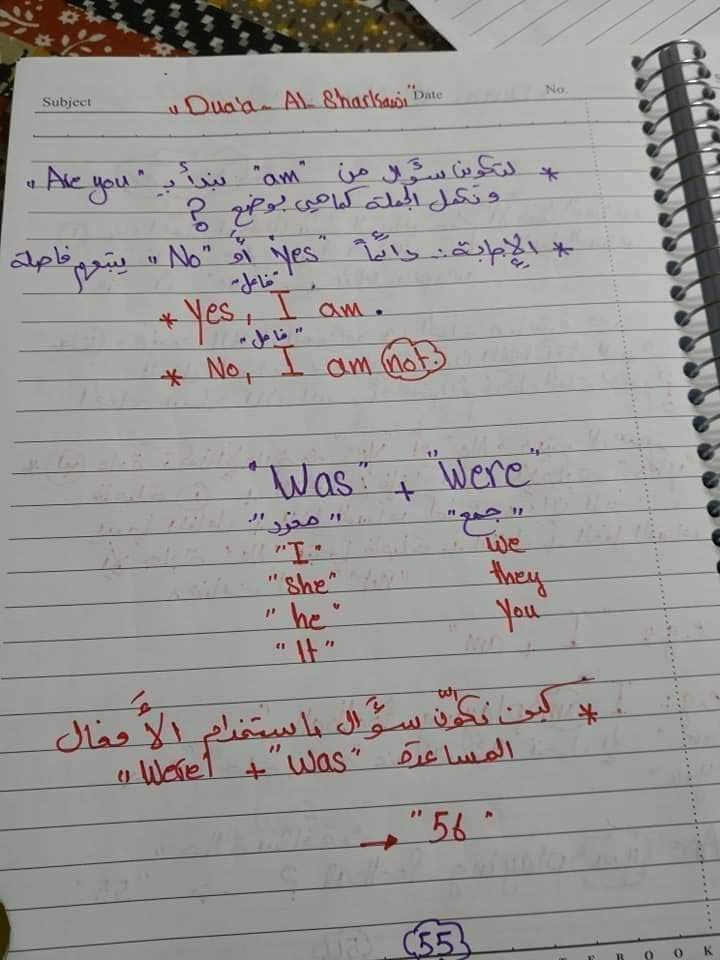 Subject "Dua'a - Al-Sharkawi" Date No.
* لتكوين سؤال من "am" نبدأ بـ "Are you"
ونكمل الجملة كما هي بوضع ؟
* الإجابة: دائماً "Yes" أو "No" يتبعهم فاصلة
"فاعل"
* Yes, I am.
"فاعل"
* No, I am not.
"Was" + "Were"
"مفرد" "جمع"
"I" we
"she" they
"he" You
"It"
* كيف نكوّن سؤال باستخدام الأفعال
المساعدة "Was" + "Were"
→ "56"
55